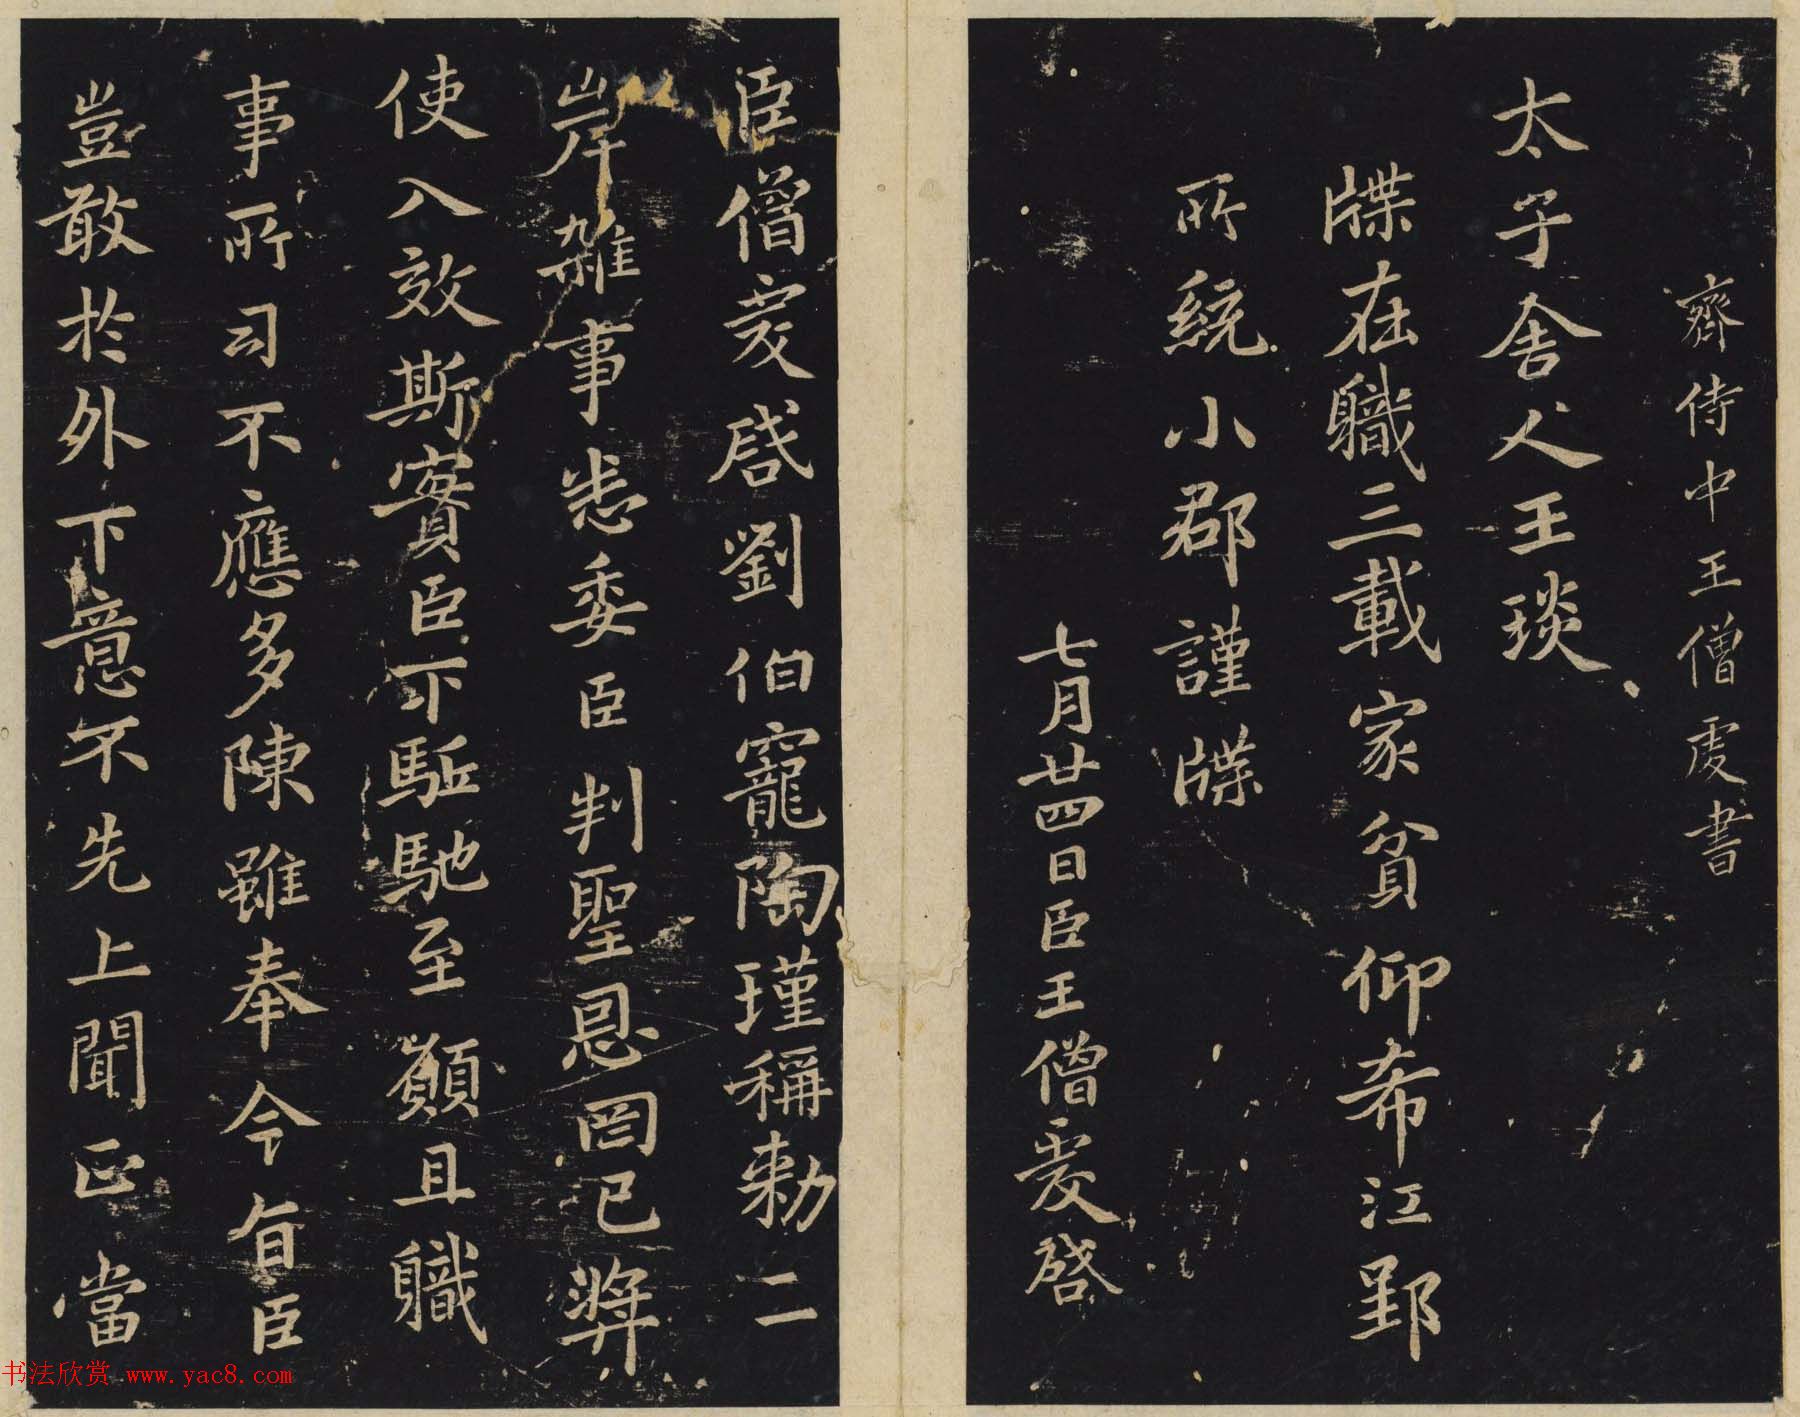 齊侍中王僧虔書
太子舍人王琰
牒在職三載家貧仰希江郢
所統小郡謹牒
七月廿四日臣王僧虔啓
臣僧虔啓劉伯寵陶瑾稱勅二
岸雜事悉委臣判聖恩罔已奬
使入效斯實臣下駈馳至願且職
事所司不應多陳雖奉今旨臣
豈敢於外下意不先上聞正當
书法欣赏 www.yac8.com